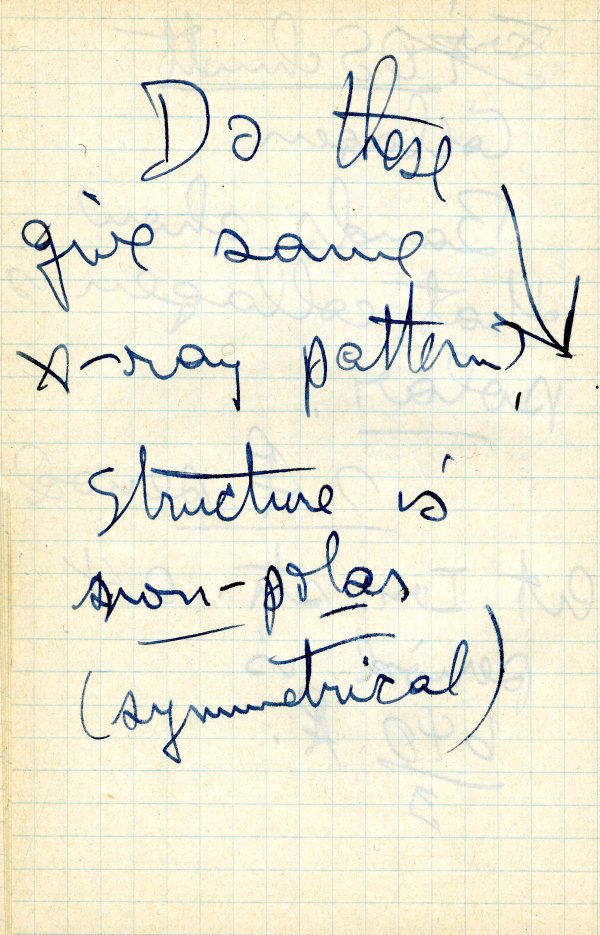 Do these
give same
x-ray pattern?
Structure is
non-polar
(symmetrical)